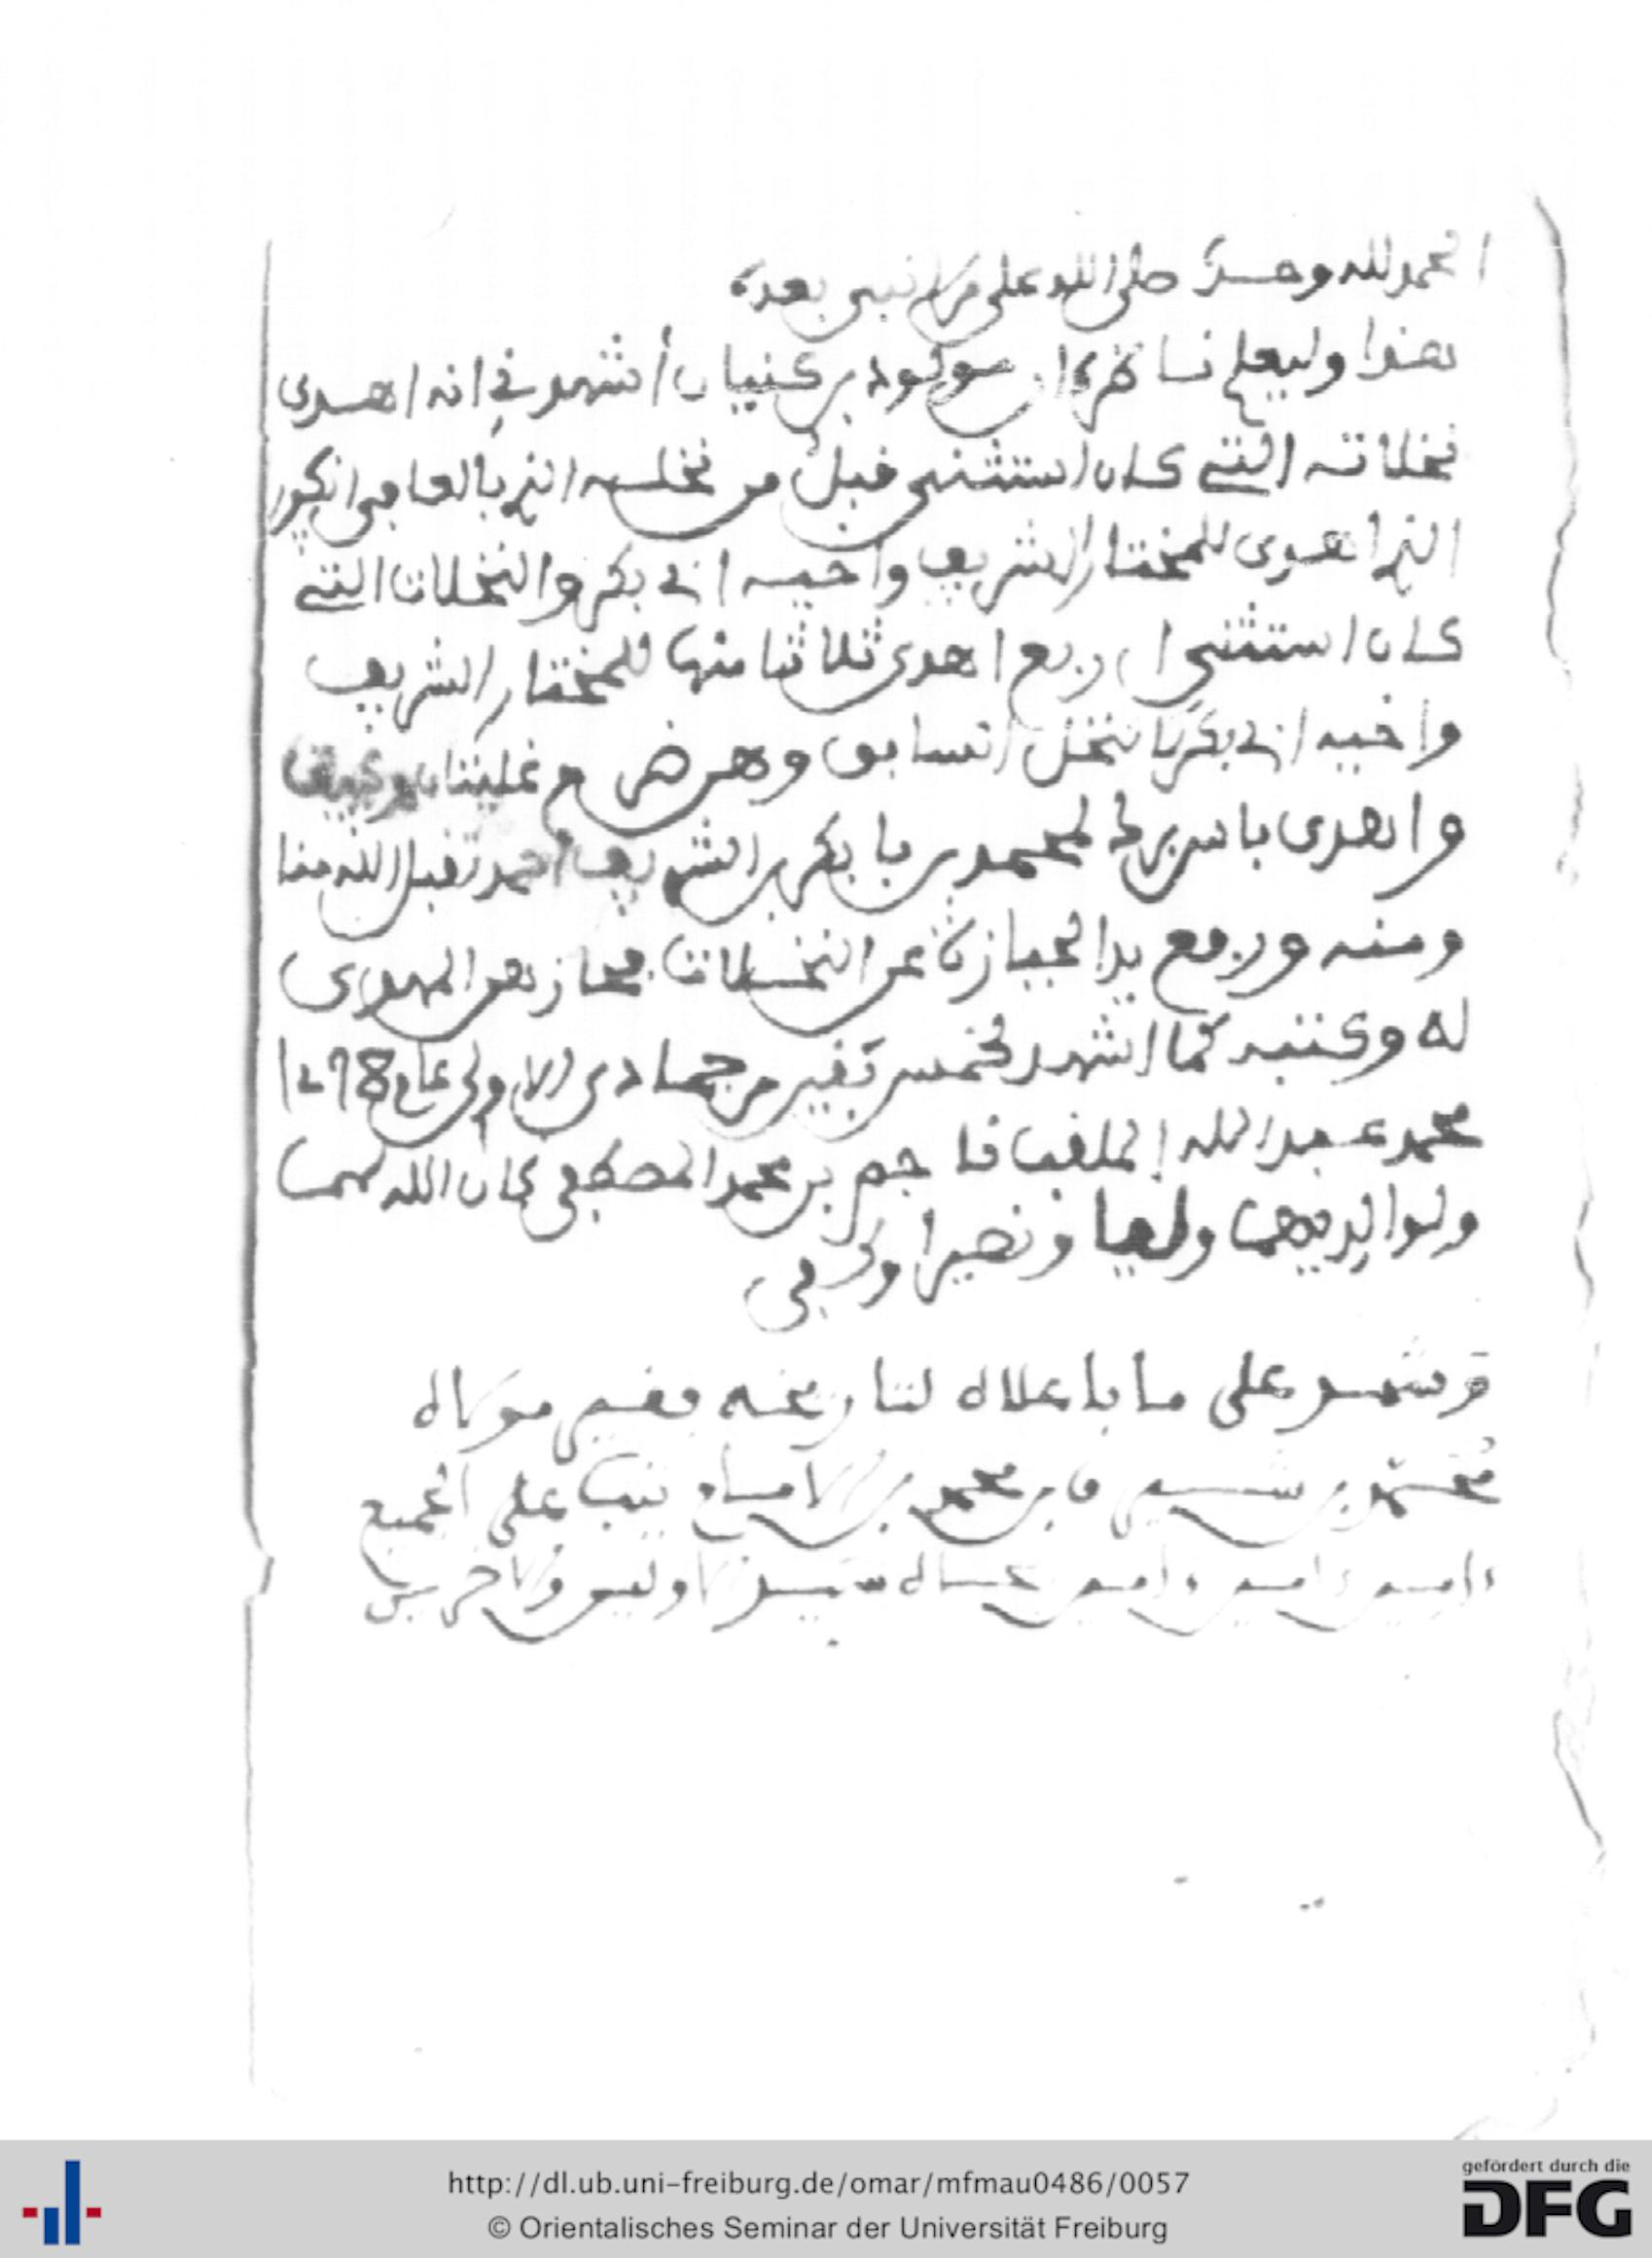 الحمد لله وحده صلى الله على من لا نبي بعده
هذا وليعلم ناظره ان بن كنيان أشهدني انه اهدى
نخلاته التي كان استثنى قبل من نخله الذي بالعا
الذي اهدى للمختار الشريف واخيه ابي بكر والنخلات التي
كان استثنى اربع اهدى ثلاثا منها للمختار الشريف
واخيه ابي بكر بالنخل السابق وهن
واهدى لمحمد بن بابكر بن الشريف احمد تقبل الله منا
ومنه ورفع يد الحيازة عن النخلات فحازهن المهدى
له وكتبه كما اشهد لخمس بقين من جمادى الاولى عام 1298
محمد عبد الله الملقب بن محمد المصطفى كان الله لهما
ولوالديهما وليا ونصيرا وكفى
على ما باعلاه لتاريخه فقير مولاه
بن محمد بن الامام على الجميع
ءامين ءامين ءامين سيد الاولين والاخرين
http://dl.ub.uni-freiburg.de/omar/mfmau0486/0057
© Orientalisches Seminar der Universität Freiburg
gefördert durch die
DFG